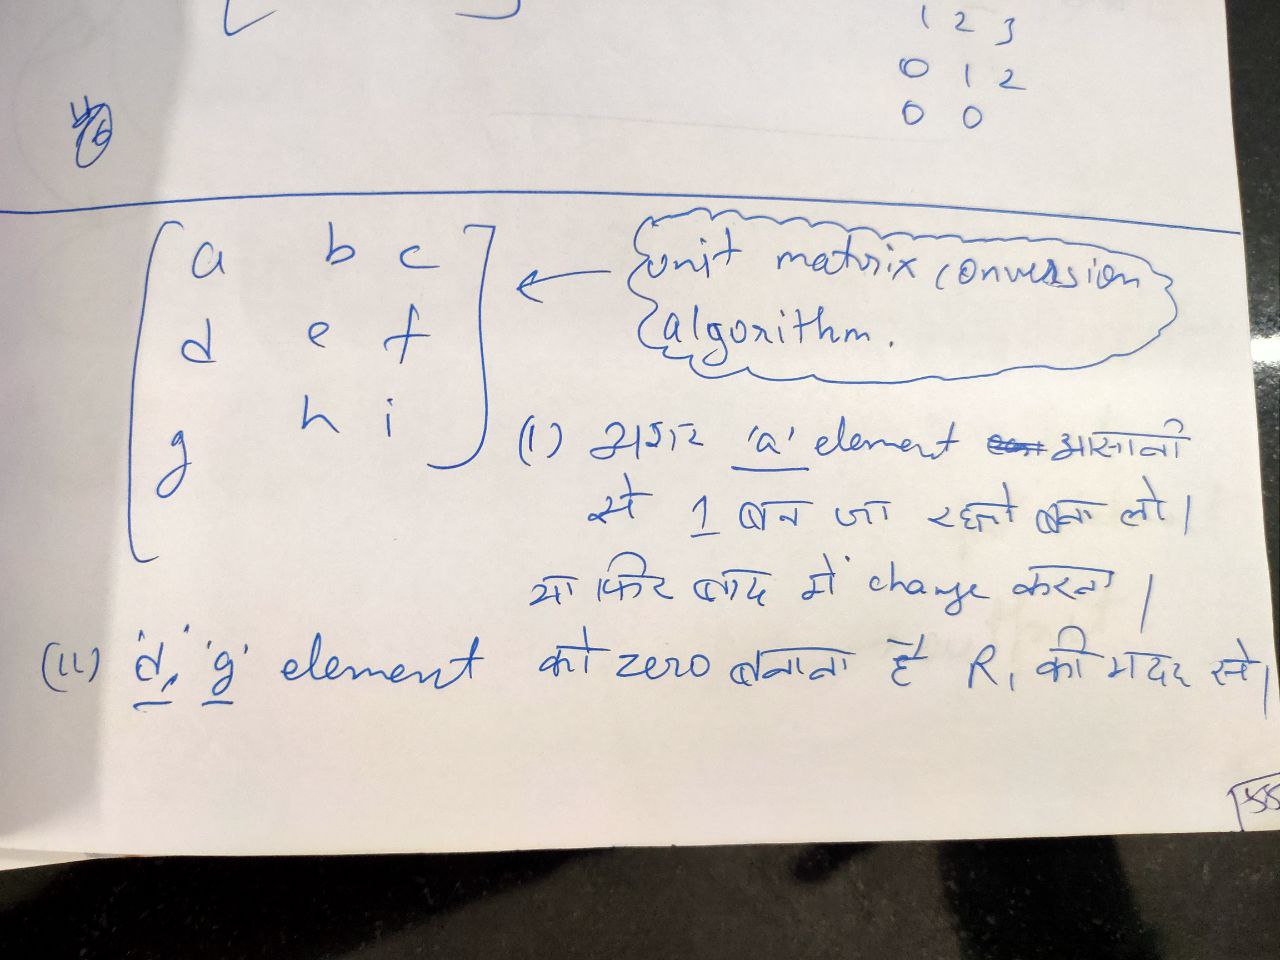 1 2 3
0 1 2
0 0
a b c
d e f
g h i
unit matrix conversion
algorithm.
(i) अगर 'a' element आसानी
से 1 बन जा रहा तो बना लो।
या फिर बाद में change करना।
(ii) 'd', 'g' element को zero बनाना है R₁ की मदद से।